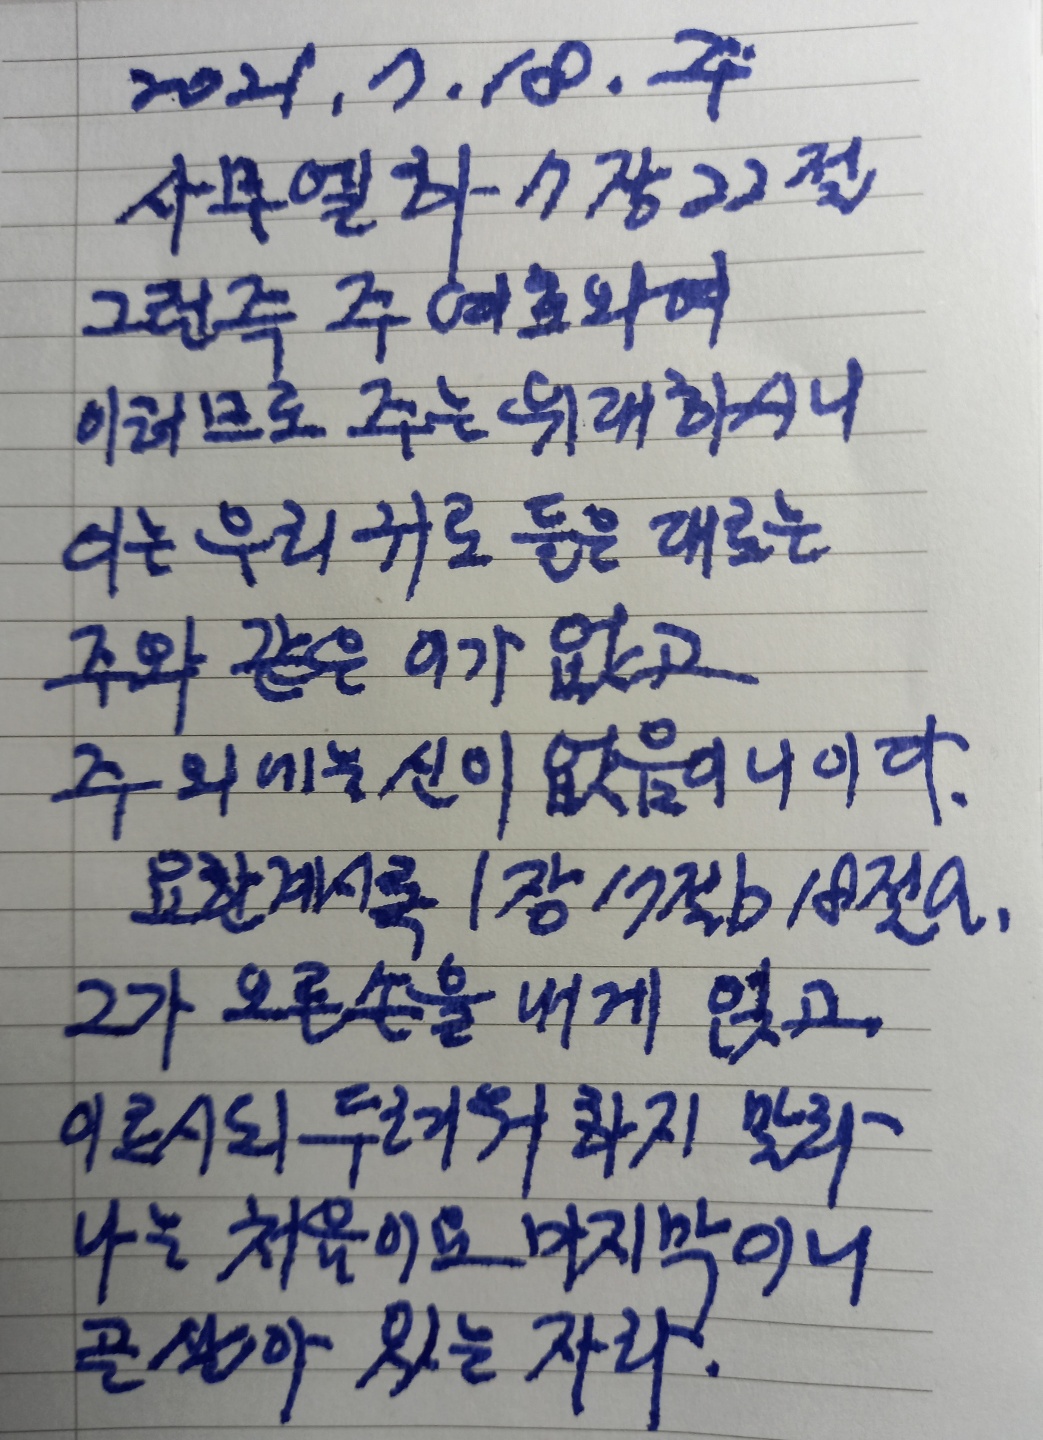 2021. 7. 18. 주
사무엘하 7장 22절
그런즉 주 여호와여
이러므로 주는 위대하시니
이는 우리 귀로 들은 대로는
주와 같은 이가 없고
주 외에는 신이 없음이니이다.
요한계시록 1장 17절b 18절a.
그가 오른손을 내게 얹고.
이르시되 두려워 하지 말라
나는 처음이요 마지막이니
곧 살아 있는 자라.